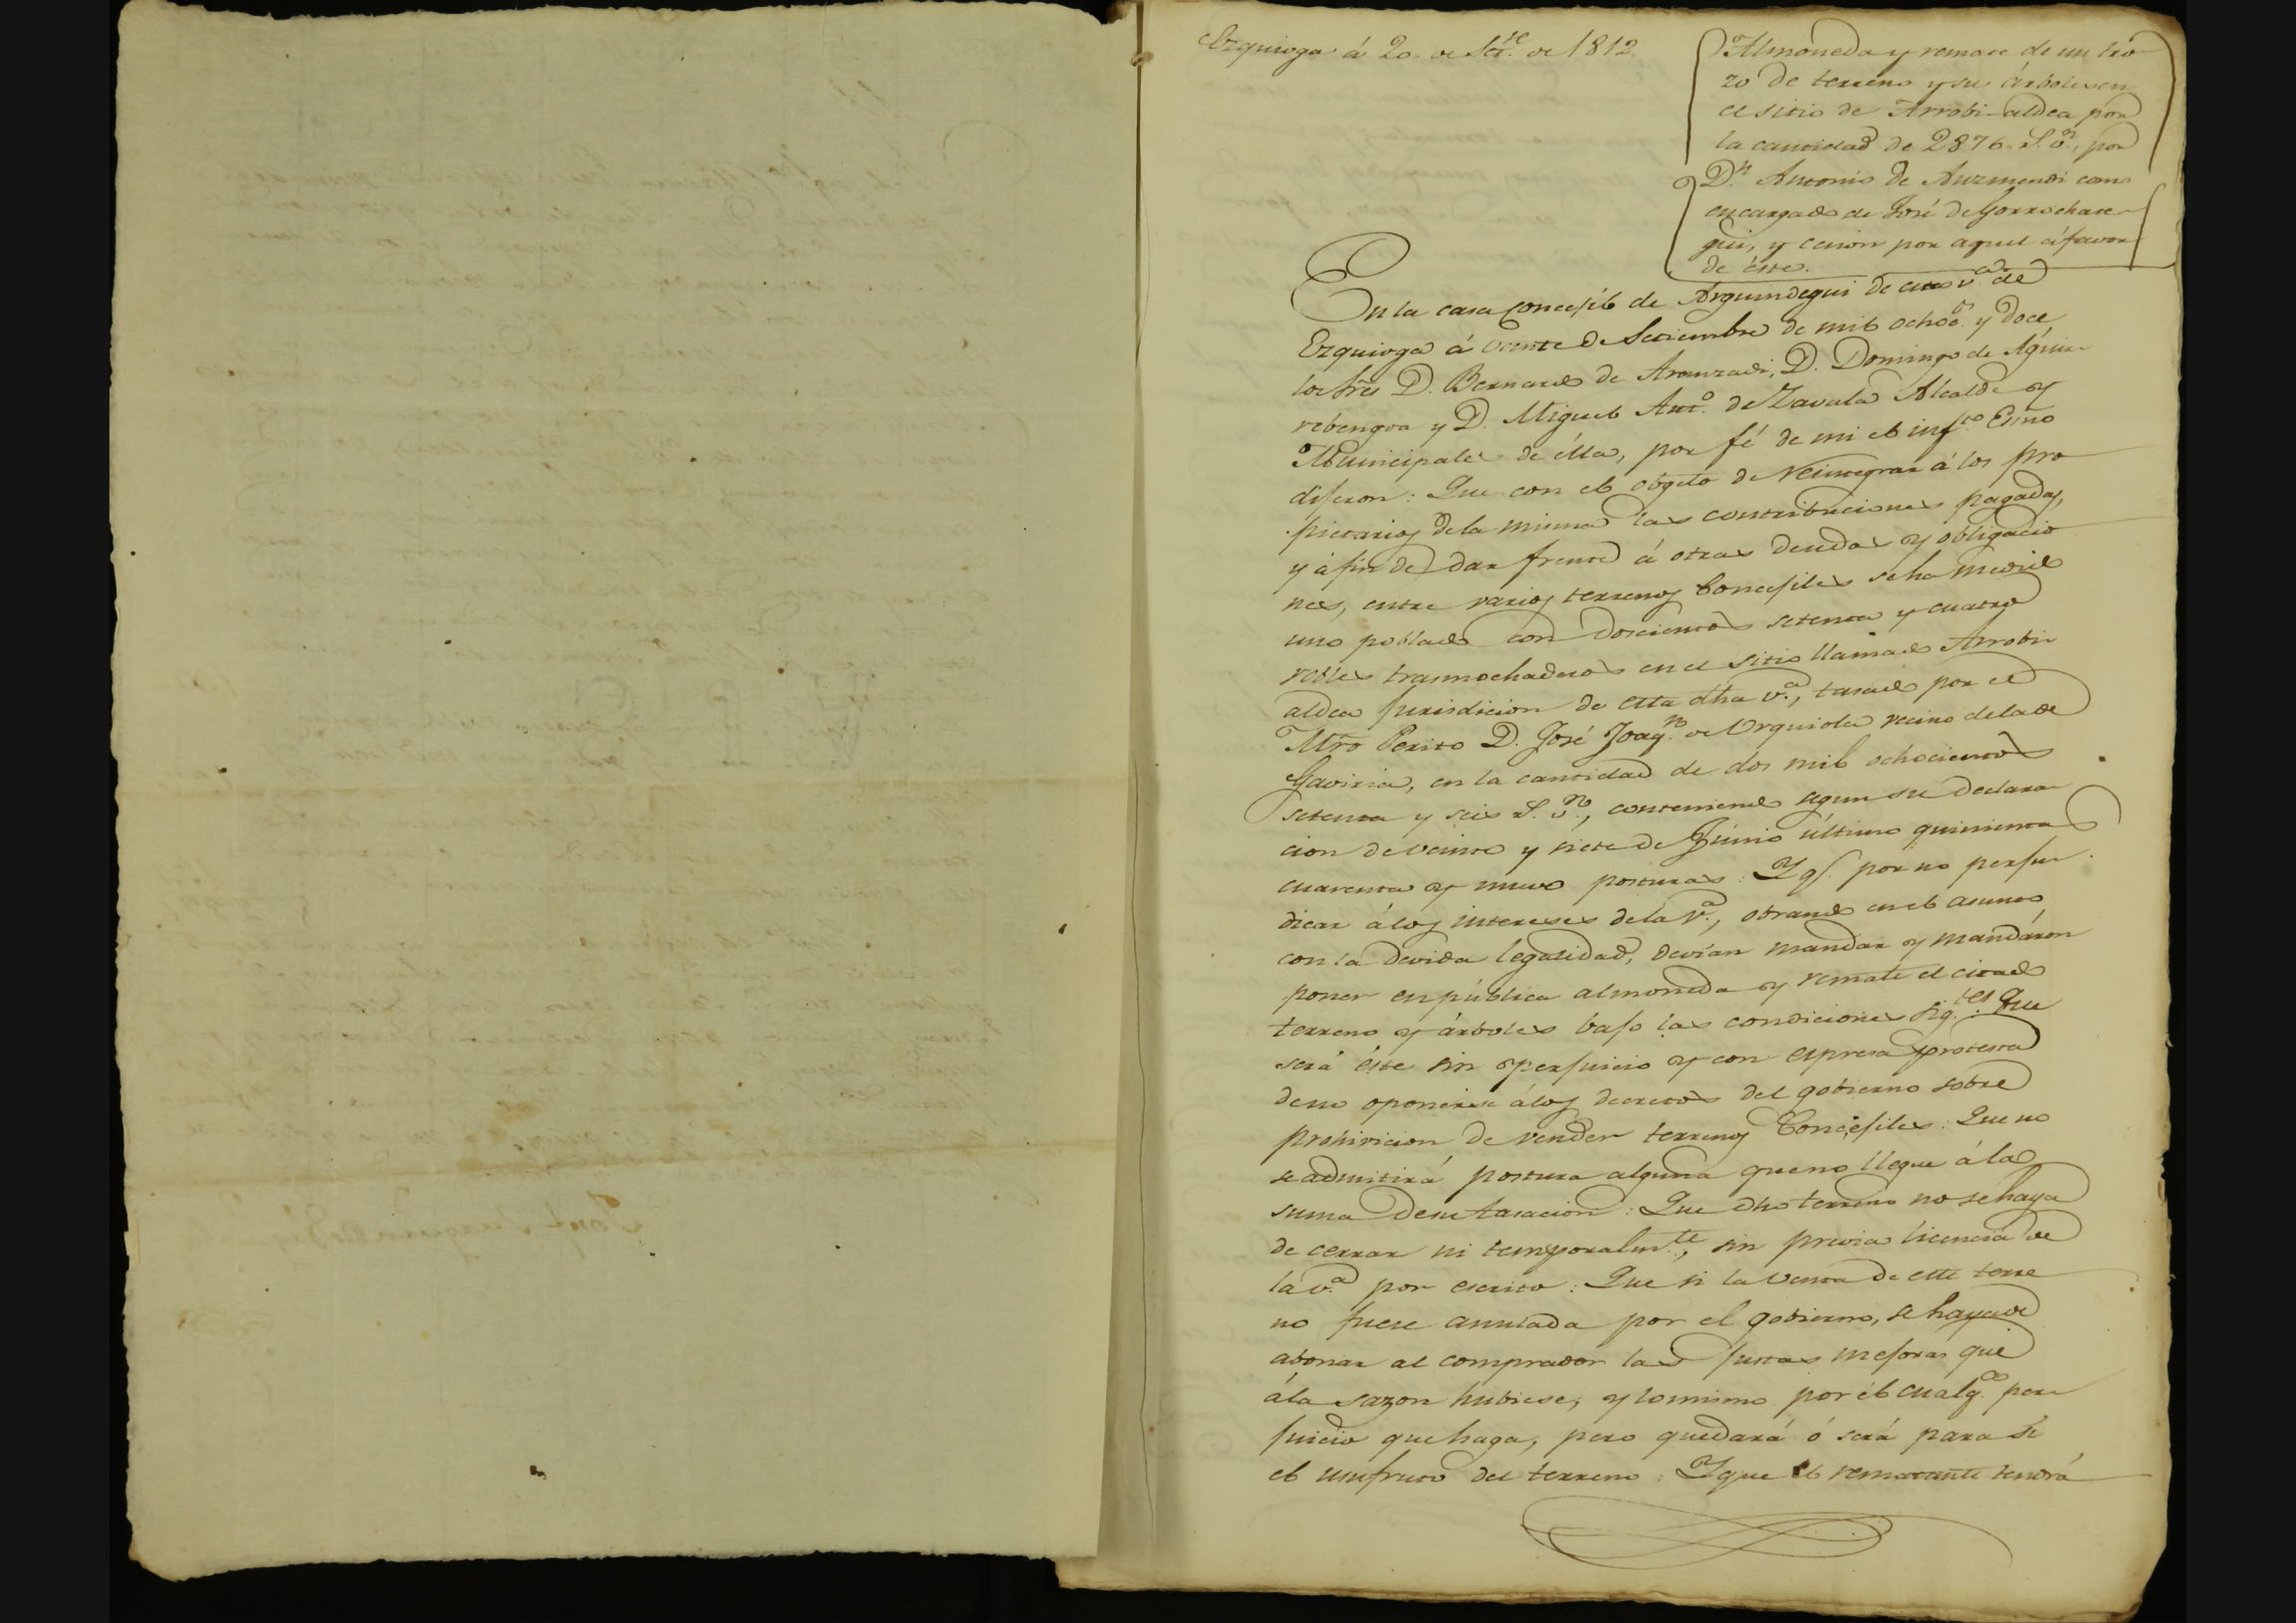 Ezquioga á 20. de Sre. de 1812.
Almoneda y remate de un tro
zo de terreno y su árboles en
el sitio de Arrobi-aldea por
la cantidad de 2876. r.s v.n, por
D.n Antonio de Auzmendi como
encargado de José de Gorrochate-
gui, y cesion por aquel á favor
de éste.
En la casa Concejil de Arguindegui de esta v.a de
Ezquioga á veinte de Setiembre de mil ochoc.s y doce
los Sres D. Bernardo de Aranzadi, D. Domingo de Aguir
rebengoa y D. Miguel Ant.o de Zavala Alcalde y
Municipales de élla, por fé de mi el inf.to Esno
dijeron: Que con el objeto de reintegrar á los pro
pietarios de la misma las contribuciones pagadas,
y á fin de dar frente á otras deudas y obligacio
nes, entre varios terrenos Concejiles se ha medido
uno poblado con doscientos setenta y cuatro
robles trasmochaderos en el sitio llamado Arrobi
aldea jurisdicion de esta dha v.a, tasado por el
Mro Perito D. José Joaq.n de Urquiola vecino de la de
Gaviria, en la cantidad de dos mil ochocientos
setenta y seis r.s v.n, conteniendo segun su declara
cion de veinte y siete de Junio último quinientas
cuarenta y nueve posturas: Y q.e por no perju
dicar á los intereses de la v.a, obrando en el asunto
con la devida legalidad, devían mandar y mandáron
poner en pública almoneda y remate el citado
terreno y árboles bajo las condiciones sig.tes Que
será éste sin perjuicio y con espresa protesta
de no oponerse á los decretos del gobierno sobre
prohivicion de vender terrenos Concejiles: Que no
se admitirá postura alguna que no llegue á la
suma de su tasacion: Que dho terreno no se haya
de cerrar ni temporalm.te, sin previa licencia de
la v.a por escrito: Que si la venta de este terre
no fuese anulada por el gobierno, se haya de
abonar al comprador las justas mejoras que
á la sazon hubiese, y lo mismo por él cualq.a per
juicio que haga, pero quedará ó será para si
el usufruto del terreno: Y que el rematante tendrá